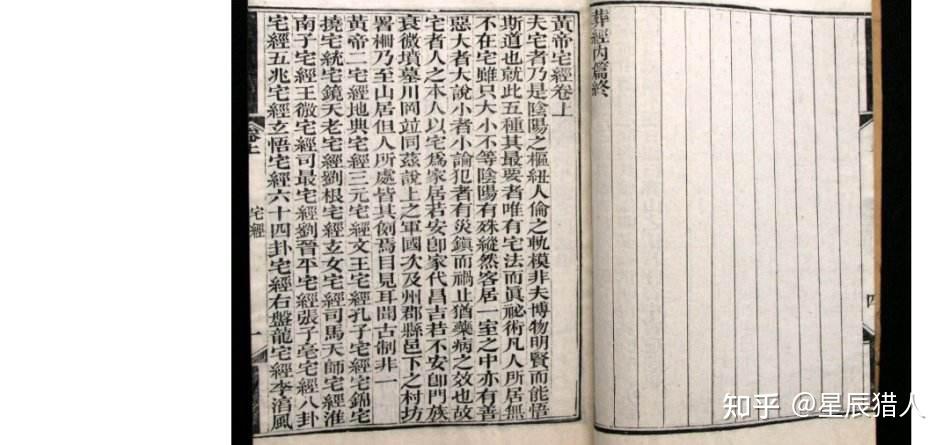 葬經內篇終
四
黃帝宅經卷上
夫宅者乃是陰陽之樞紐人倫之軌模非夫博物明賢而能悟
斯道也就此五種其最要者唯有宅法而眞祕術凡人所居無
不在宅雖只大小不等陰陽有殊縱然客居一室之中亦有善
惡大者大說小者小論犯者有災鎮而禍止猶藥病之效也故
宅者人之本人以宅爲家居若安卽家代昌吉若不安卽門族
衰微墳墓川岡竝同茲說上之軍國次及州郡縣邑下之村坊
署柵乃至山居但人所處皆其例焉目見耳聞古制非一
黃帝二宅經地典宅經三元宅經文王宅經孔子宅經宅錦宅
撓宅統宅鏡天老宅經劉根宅經玄女宅經司馬天師宅經淮
南子宅經王微宅經司最宅經劉晉平宅經張子毫宅經八卦
宅經五兆宅經玄悟宅經六十四卦宅經右盤龍宅經李淳風
卷上
宅經
一
知乎 @星辰猎人